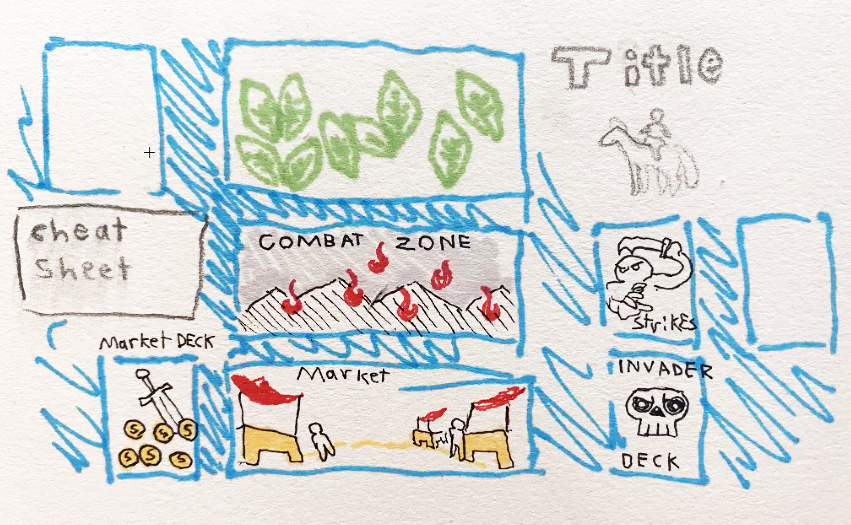 Title
cheat
Sheet
COMBAT ZONE
StrikES
Market DECK
Market
INVADER
DECK
$ $ $
$ $ $